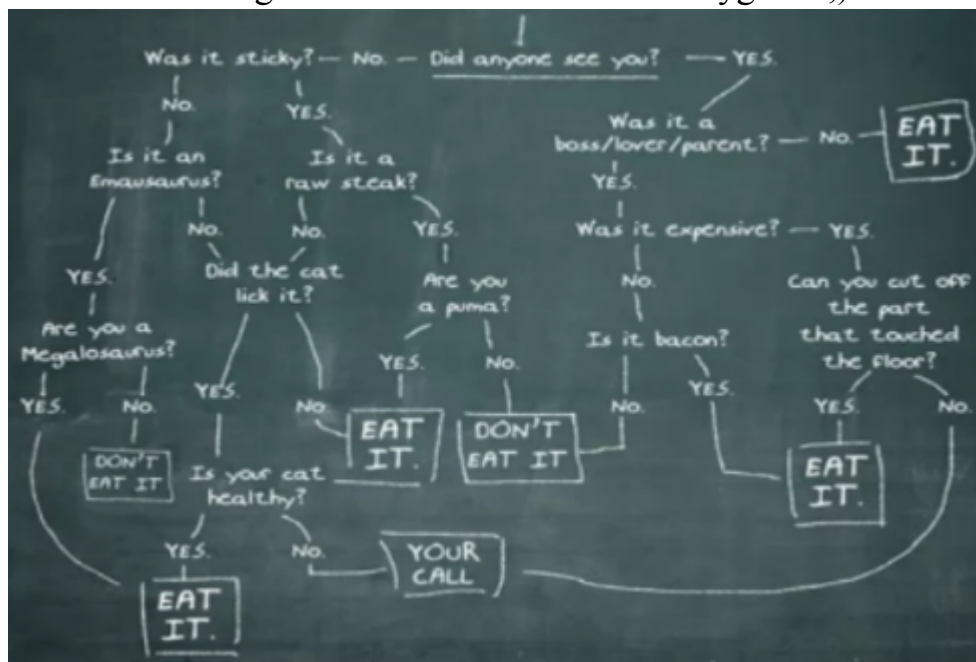 Was it sticky? — No. — Did anyone see you? — YES.
No.
YES.
Was it a
boss/lover/parent? — No. — EAT
IT.
Is it an
Emausaurus?
Is it a
raw steak?
YES.
No.
No.
YES.
Was it expensive? — YES.
YES.
Did the cat
lick it?
Are you
a puma?
No.
Can you cut off
the part
that touched
the floor?
Are you a
Megalosaurus?
Is it bacon?
YES.
No.
YES.
No.
YES.
No.
No.
YES.
YES.
No.
DON'T
EAT IT
EAT
IT.
DON'T
EAT IT
EAT
IT.
Is your cat
healthy?
YES.
No.
YOUR
CALL
EAT
IT.